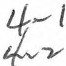 4-1
4-2